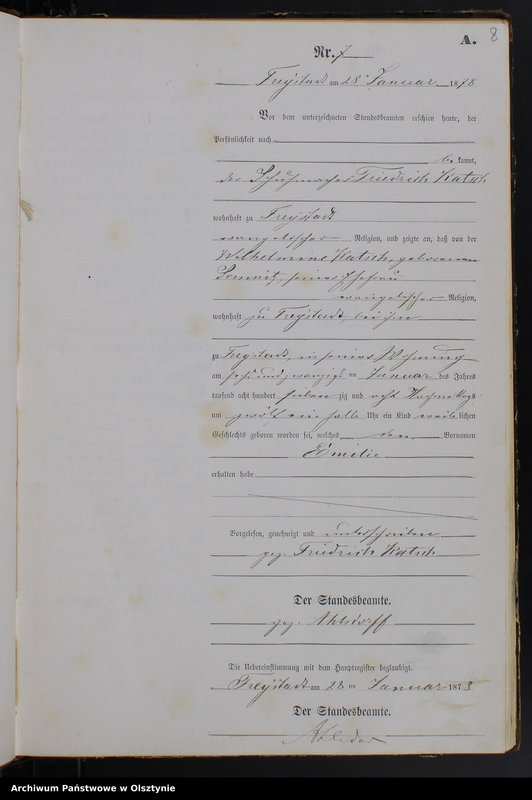 8
A.
Nr. 7
Freystadt am 28 Januar 1878
Vor dem unterzeichneten Standesbeamten erschien heute, der
Persönlichkeit nach
be kannt,
der Schuhmacher Friedrich Katsch
wohnhaft zu Freystadt
evangelischer Religion, und zeigte an, daß von der
Wilhelmine Katsch, geborenen
seiner Ehefrau
evangelischer Religion,
wohnhaft zu Freystadt, bei ihm
zu Freystadt, in seiner Wohnung
am sechs und zwanzigs ten Januar des Jahres
tausend acht hundert sieben zig und acht Nachmittags
um zwölf ein halb Uhr ein Kind weib lichen
Geschlechts geboren worden sei, welches den Vornamen
Emilie
erhalten habe
Vorgelesen, genehmigt und unterschrieben
gez. Friedrich Katsch
Der Standesbeamte.
gez. Ahlsdorff
Die Uebereinstimmung mit dem Hauptregister beglaubigt.
Freystadt am 28 ten Januar 1878
Der Standesbeamte.
Archiwum Państwowe w Olsztynie